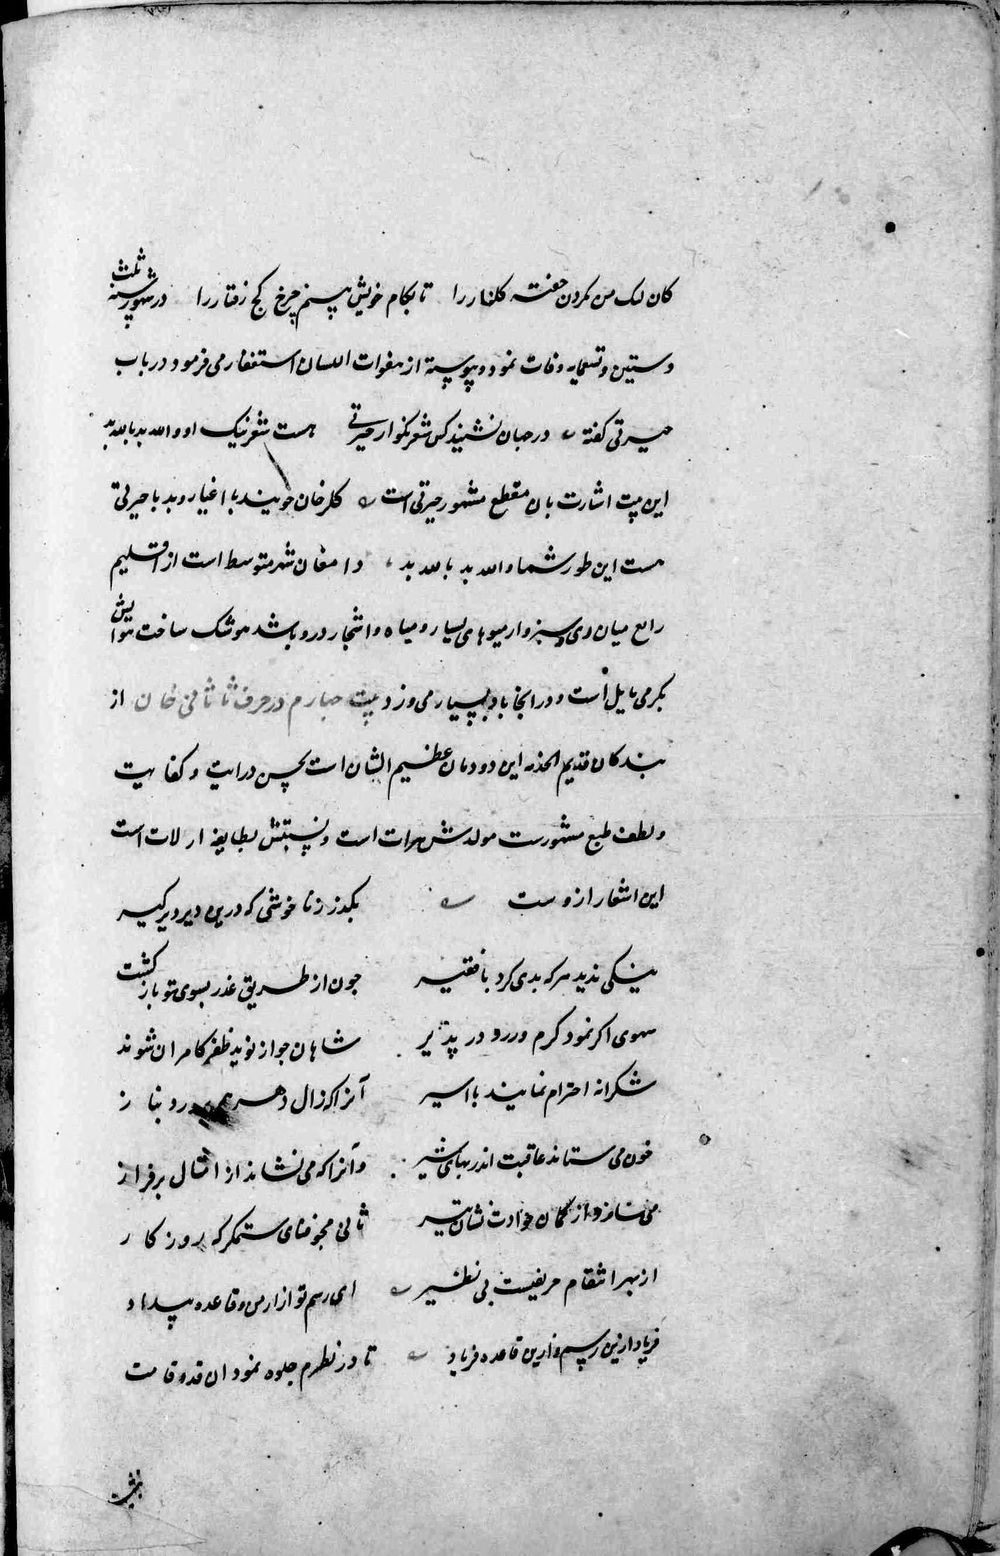 کان لب من کردن جفت کلنار را تا بکام خویش بینم چرخ کج رفتار را در شهور سنه ثلث
و ستین و تسعمایه وفات نمود و پیوسته از هفوات اللسان استغفار می فرمود در باب
حیرتی کفته در جهان نشنید کس شعر نکو از حیرتی هست شعر نیک او والله بد بالله بد
این بیت اشارت بان مقطع مشهور حیرتی است کلرخان خوبیند با اغیار و بد با حیرتی
هست این طور شما والله بد بالله بد دامغان شهر متوسط است از اقلیم
رابع میان وی و سبزوار میوهای بسیار و میاه و اشجار درو باشد هوشک ساخت هوایش
بکرمی مایل است و در انجا باد بسیار می وزد بیت چهارم در حرف ثا ثانی خان از
بندکان قدیم الخدمه این دودمان عظیم الشان است بحسن درایت و کفایت
و لطف طبع مشهورست مولدش هرات است و نسبتش بطایفه ارلات است
این اشعار ازوست بکذر ز ناخوشی که درین دیر دیرکیر
نیکی ندید هرکه بدی کرد با فقیر چون از طریق غدر بسوی تو بازکشت
سهوی اکر نمود کرم ورزد در پذیر شاهان چو از نوید ظفر کامران شوند
شکرانه احترام نمایند با اسیر آنرا که زال دهر بپرورد بناز
خون می ستاند عاقبت اندر بهای شیر وآنرا که می نشاند از اقبال بر فراز
می سازد از کمان حوادث نشان تیر ثانی مجو صفای ستمکر که روزکار
از بهر انتقام حریفیست بی نظیر ای رسم تو ازار من و قاعده بیداد
فریاد ازین رسم و ازین قاعده فریاد تا در نظرم جلوه نمود ان قد و قامت